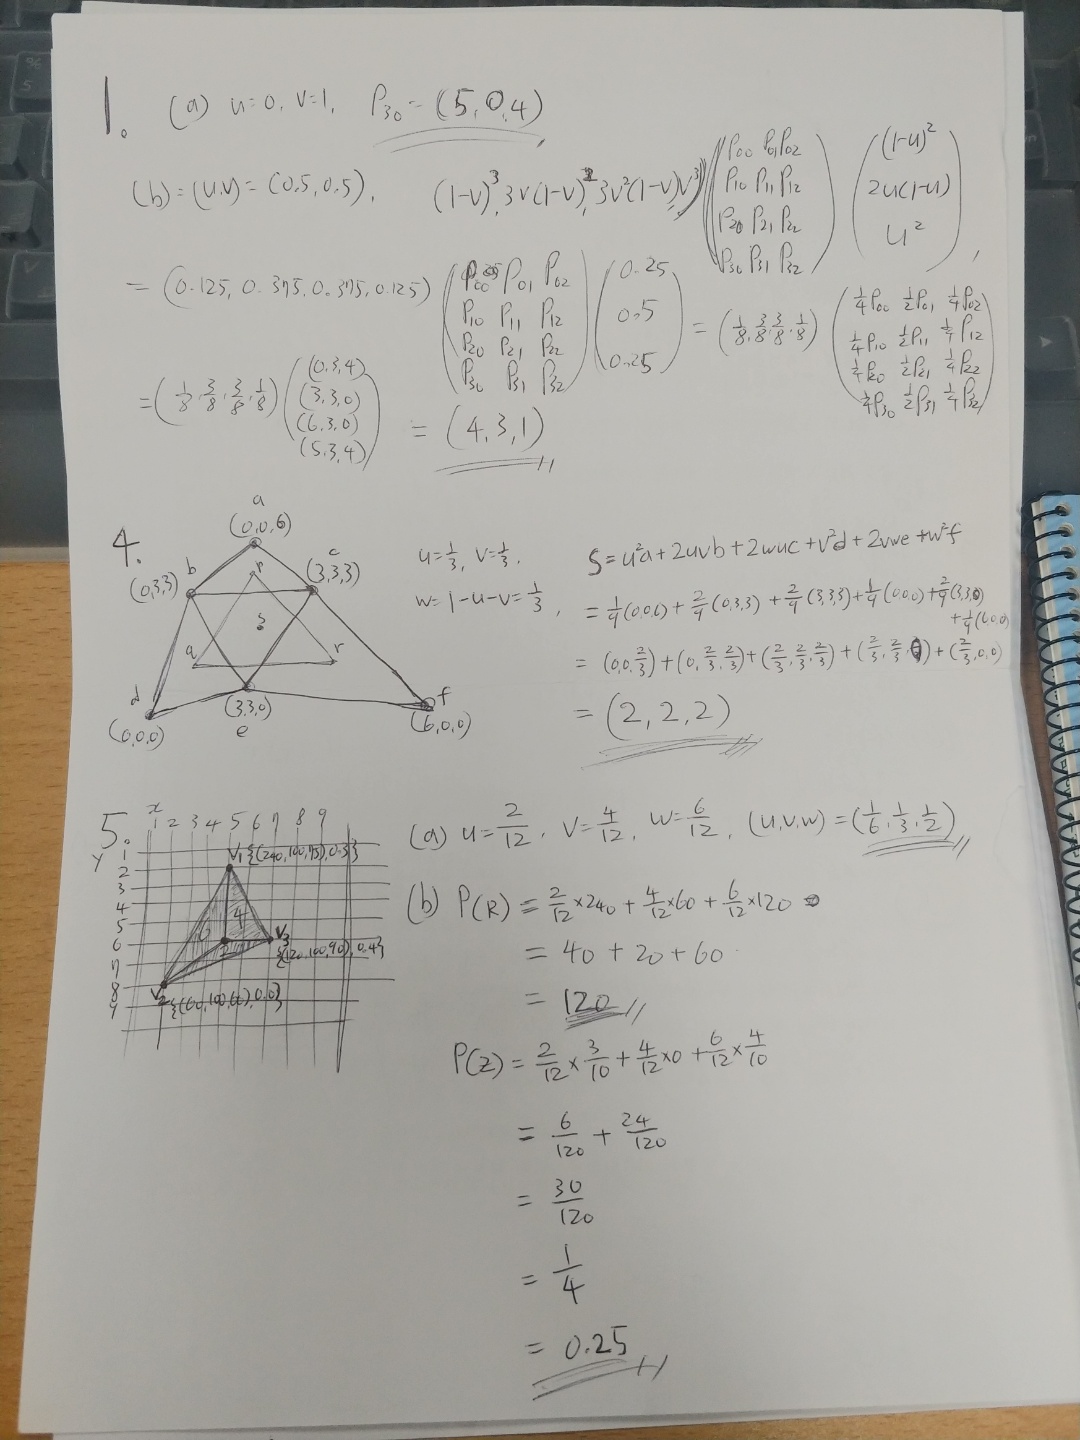 1. (a) u=0, v=1, P30 = (5,0,4)
(b) = (u,v) = (0.5, 0.5), (1-v)^3, 3v(1-v)^2, 3v^2(1-v) v^3) (P00 P01 P02 / P10 P11 P12 / P20 P21 P22 / P30 P31 P32) ((1-u)^2 / 2u(1-u) / u^2),
= (0.125, 0.375, 0.375, 0.125) (P00 P01 P02 / P10 P11 P12 / P20 P21 P22 / P30 P31 P32) (0.25 / 0.5 / 0.25) = (1/8, 3/8, 3/8, 1/8) (1/4P00 1/2P01 1/4P02 / 1/4P10 1/2P11 1/4P12 / 1/4P20 1/2P21 1/4P22 / 1/4P30 1/2P31 1/4P32)
= (1/8, 3/8, 3/8, 1/8) ((0,3,4) / (3,3,0) / (6,3,0) / (5,3,4)) = (4,3,1)
4.
a
(0,0,6)
b
(0,3,3)
c
(3,3,3)
p
s
q
r
d
(0,0,0)
(3,3,0)
e
f
(6,0,0)
u=1/3, v=1/3,
w=1-u-v=1/3,
S=u^2a+2uvb+2wuc+v^2d+2vwe+w^2f
= 1/9(0,0,6) + 2/9(0,3,3) + 2/9(3,3,3) + 1/9(0,0,0) + 2/9(3,3,0)
+ 1/9(6,0,0)
= (0,0,2/3) + (0,2/3,2/3) + (2/3,2/3,2/3) + (2/3,2/3,0) + (2/3,0,0)
= (2,2,2)
5.
x
1 2 3 4 5 6 7 8 9
y
1
2
3
4
5
6
7
8
9
V1 {(240,100,75),0.3}
6
4
2
V3
{(120,100,90),0.4}
V2 {(60,100,60),0.0}
(a) u=2/12, v=4/12, w=6/12, (u,v,w) = (1/6, 1/3, 1/2)
(b) P(R) = 2/12×240 + 4/12×60 + 6/12×120
= 40 + 20 + 60
= 120
P(Z) = 2/12×3/10 + 4/12×0 + 6/12×4/10
= 6/120 + 24/120
= 30/120
= 1/4
= 0.25